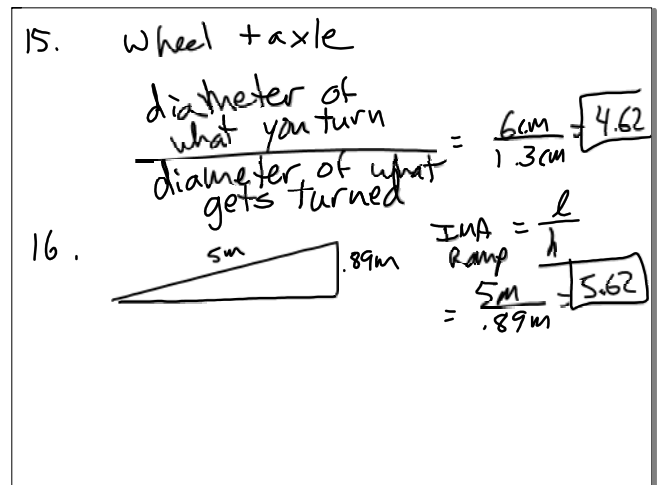 15. wheel + axle
diameter of
what you turn
diameter of what
gets turned
= 6cm / 1.3cm = 4.62
16.
5m
.89m
IMA Ramp = l / h
= 5m / .89m = 5.62